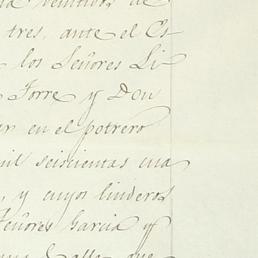 veintidos de
tres, ante el Es
los Señores Li
Torre y Don
en el potrero
mil seiscientas cua
, y cuyos linderos
Señores Garcia y
Calle que